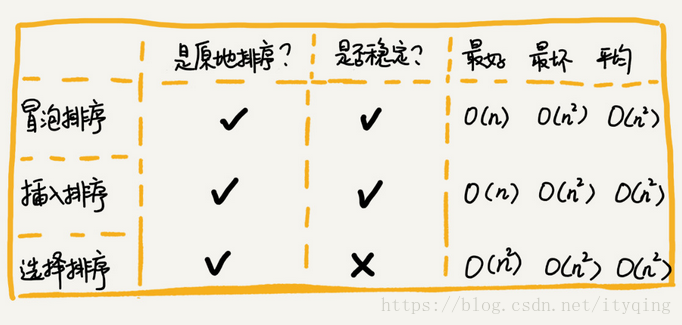 是原地排序? 是否稳定? 最好 最坏 平均
冒泡排序 ✓ ✓ O(n) O(n²) O(n²)
插入排序 ✓ ✓ O(n) O(n²) O(n²)
选择排序 ✓ × O(n²) O(n²) O(n²)
https://blog.csdn.net/ityqing